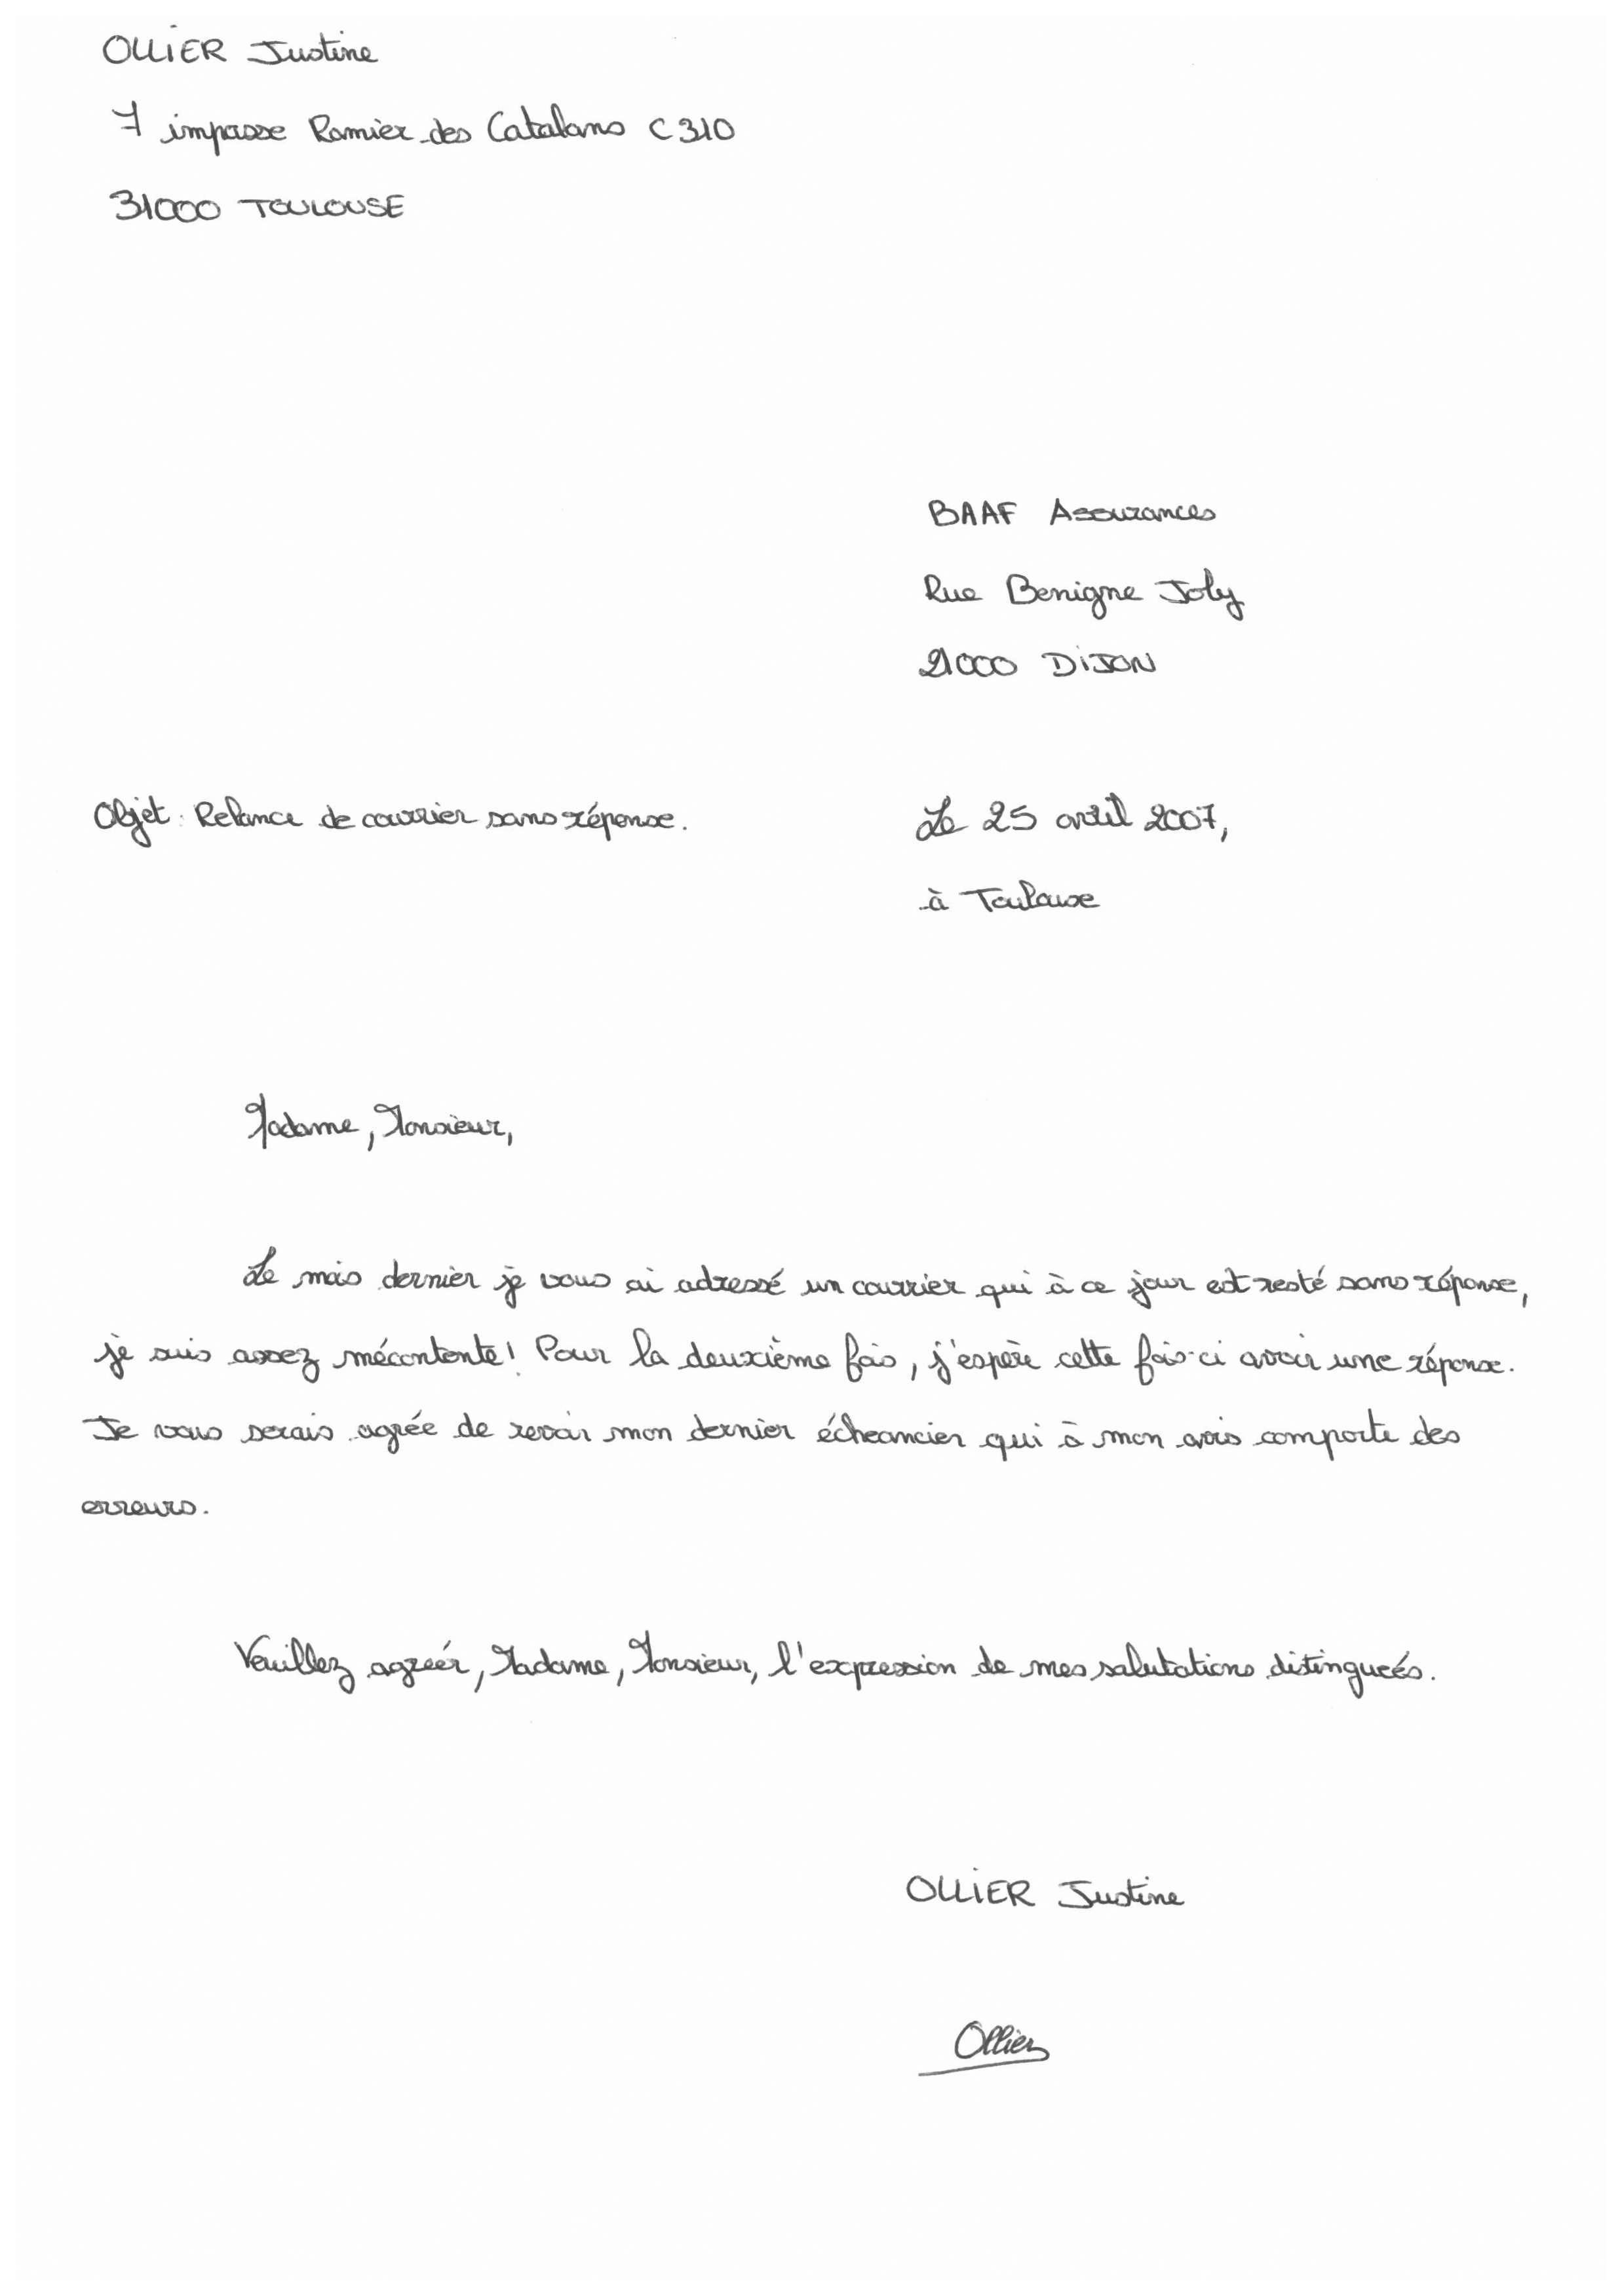 OLLIER Justine
7 impasse Ramier des Catalans C310
31000 TOULOUSE
BAAF Assurances
Rue Benigne Joly
21000 DIJON
Objet : Relance de courrier sans réponse.
Le 25 avril 2007,
à Toulouse
Madame, Monsieur,
Le mois dernier je vous ai adressé un courrier qui à ce jour est resté sans réponse,
je suis assez mécontente! Pour la deuxième fois, j'espère cette fois-ci avoir une réponse.
Je vous serais agrée de revoir mon dernier écheancier qui à mon avis comporte des
erreurs.
Veuillez agréér, Madame, Monsieur, l'expression de mes salutations distinguées.
OLLIER Justine
Ollier